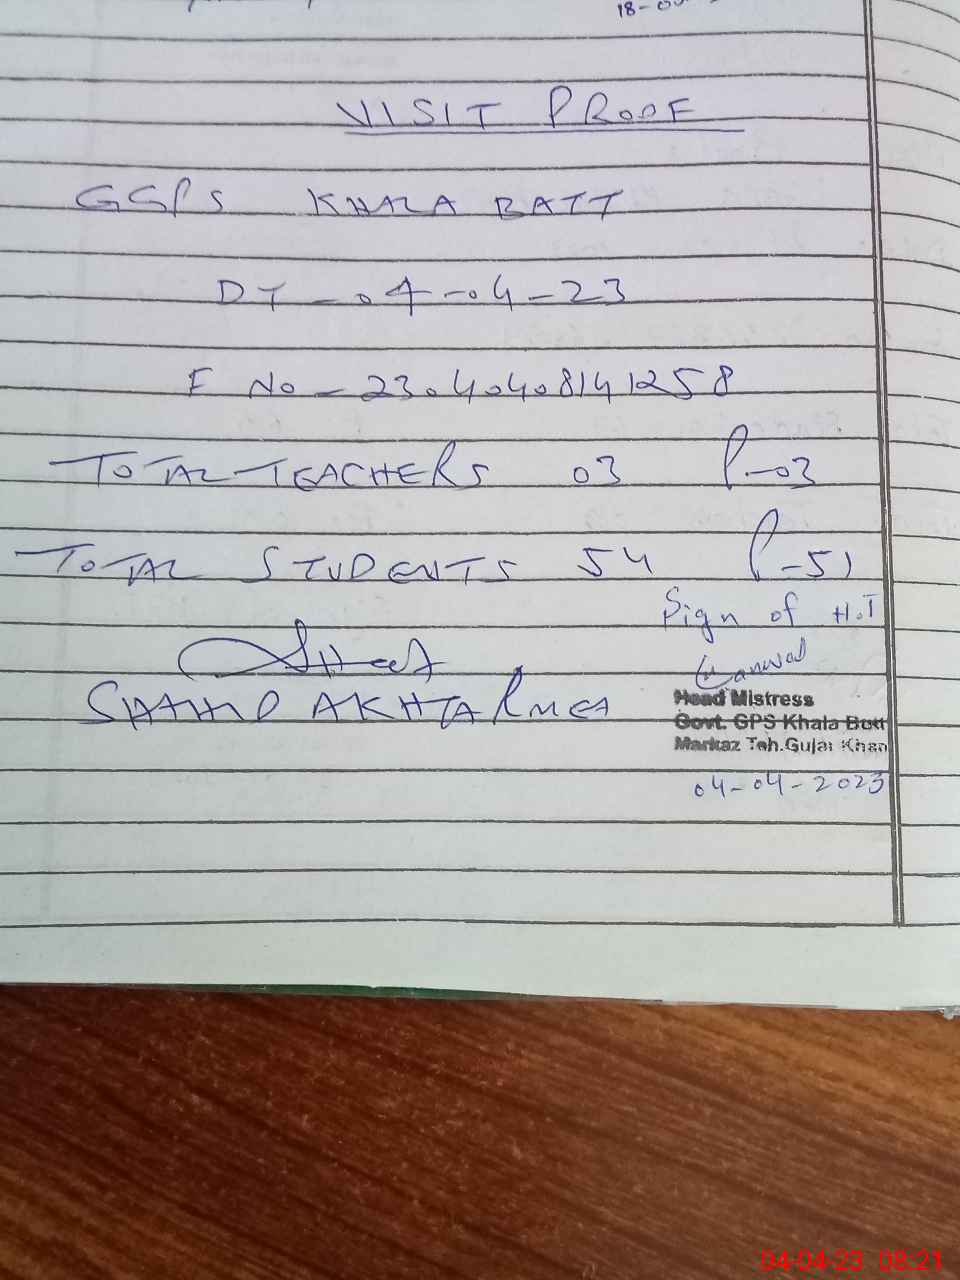 18-0
VISIT PROOF
GGPS KHALA BATT
DT - 04-04-23
F No - 23040408141258
TOTAL TEACHERS 03 P-03
TOTAL STUDENTS 54 P-51
Sign of H.T
Kanwal
SHAHID AKHTAR MEA
Head Mistress
Govt. GPS Khala Butt
Markaz Teh.Gujar Khan
04-04-2023
04-04-23 08:21